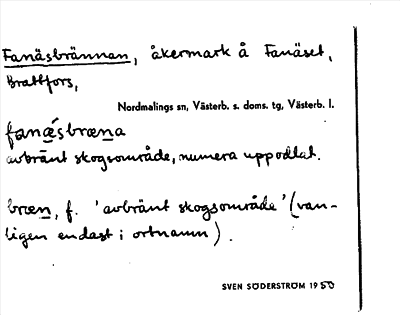 Fanäsbrännan, åkermark å Fanäset,
Brattfors,
Nordmalings sn, Västerb. s. doms. tg, Västerb. l.
fanæ´sbræna
avbränt skogsområde, numera uppodlat.
bræn, f. 'avbränt skogsområde' (van-
ligen endast i ortnamn).
SVEN SÖDERSTRÖM 1950